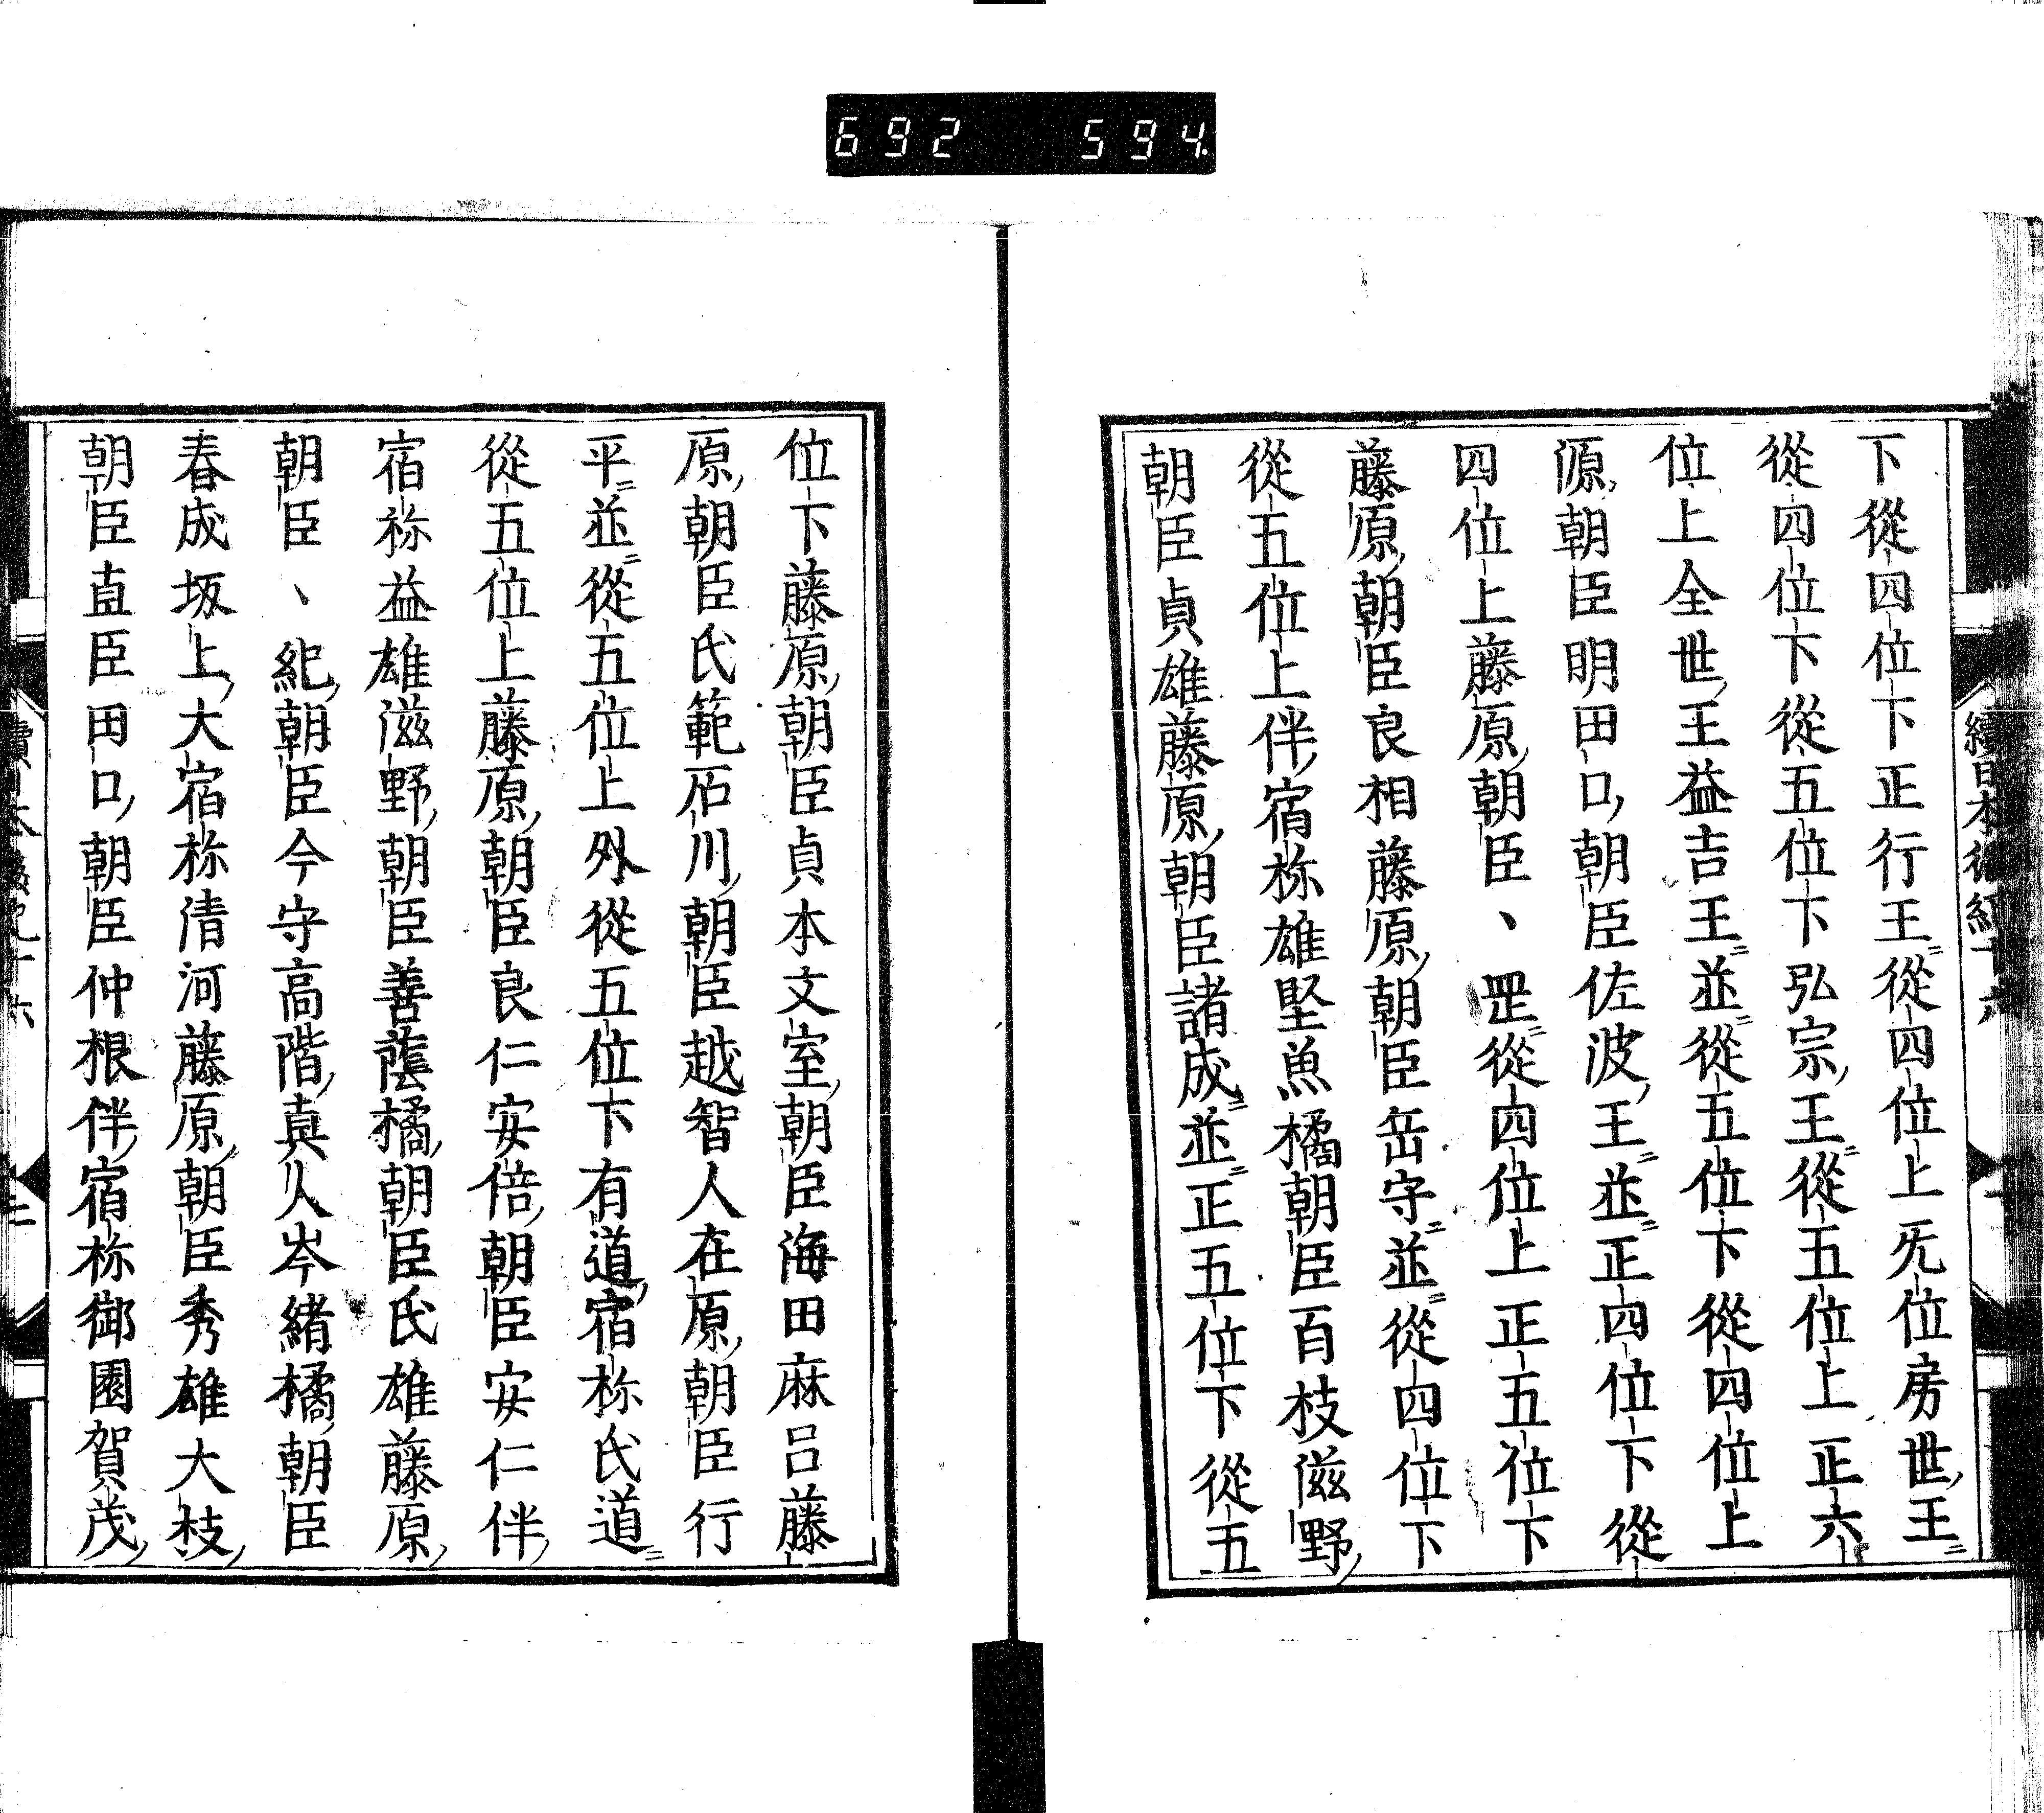 692 594.
下從四位下正行王從四位上旡位房世王
從四位下從五位下弘宗王從五位上正六
位上全世王益吉王並從五位下從四位上
源朝臣明田口朝臣佐波王並正四位下從
四位上藤原朝臣、罡從四位上正五位下
藤原朝臣良相藤原朝臣岳守並從四位下
從五位上伴宿祢雄堅魚橘朝臣百枝滋野
朝臣貞雄藤原朝臣諸成並正五位下從五
位下藤原朝臣貞本文室朝臣海田麻呂藤
原朝臣氏範石川朝臣越智人在原朝臣行
平並從五位上外從五位下有道宿祢氏道
從五位上藤原朝臣良仁安倍朝臣安仁伴
宿祢益雄滋野朝臣善蔭橘朝臣氏雄藤原
朝臣、紀朝臣今守高階真人岑緒橘朝臣
春成坂上大宿祢清河藤原朝臣秀雄大枝
朝臣直臣田口朝臣仲根伴宿祢御園賀茂